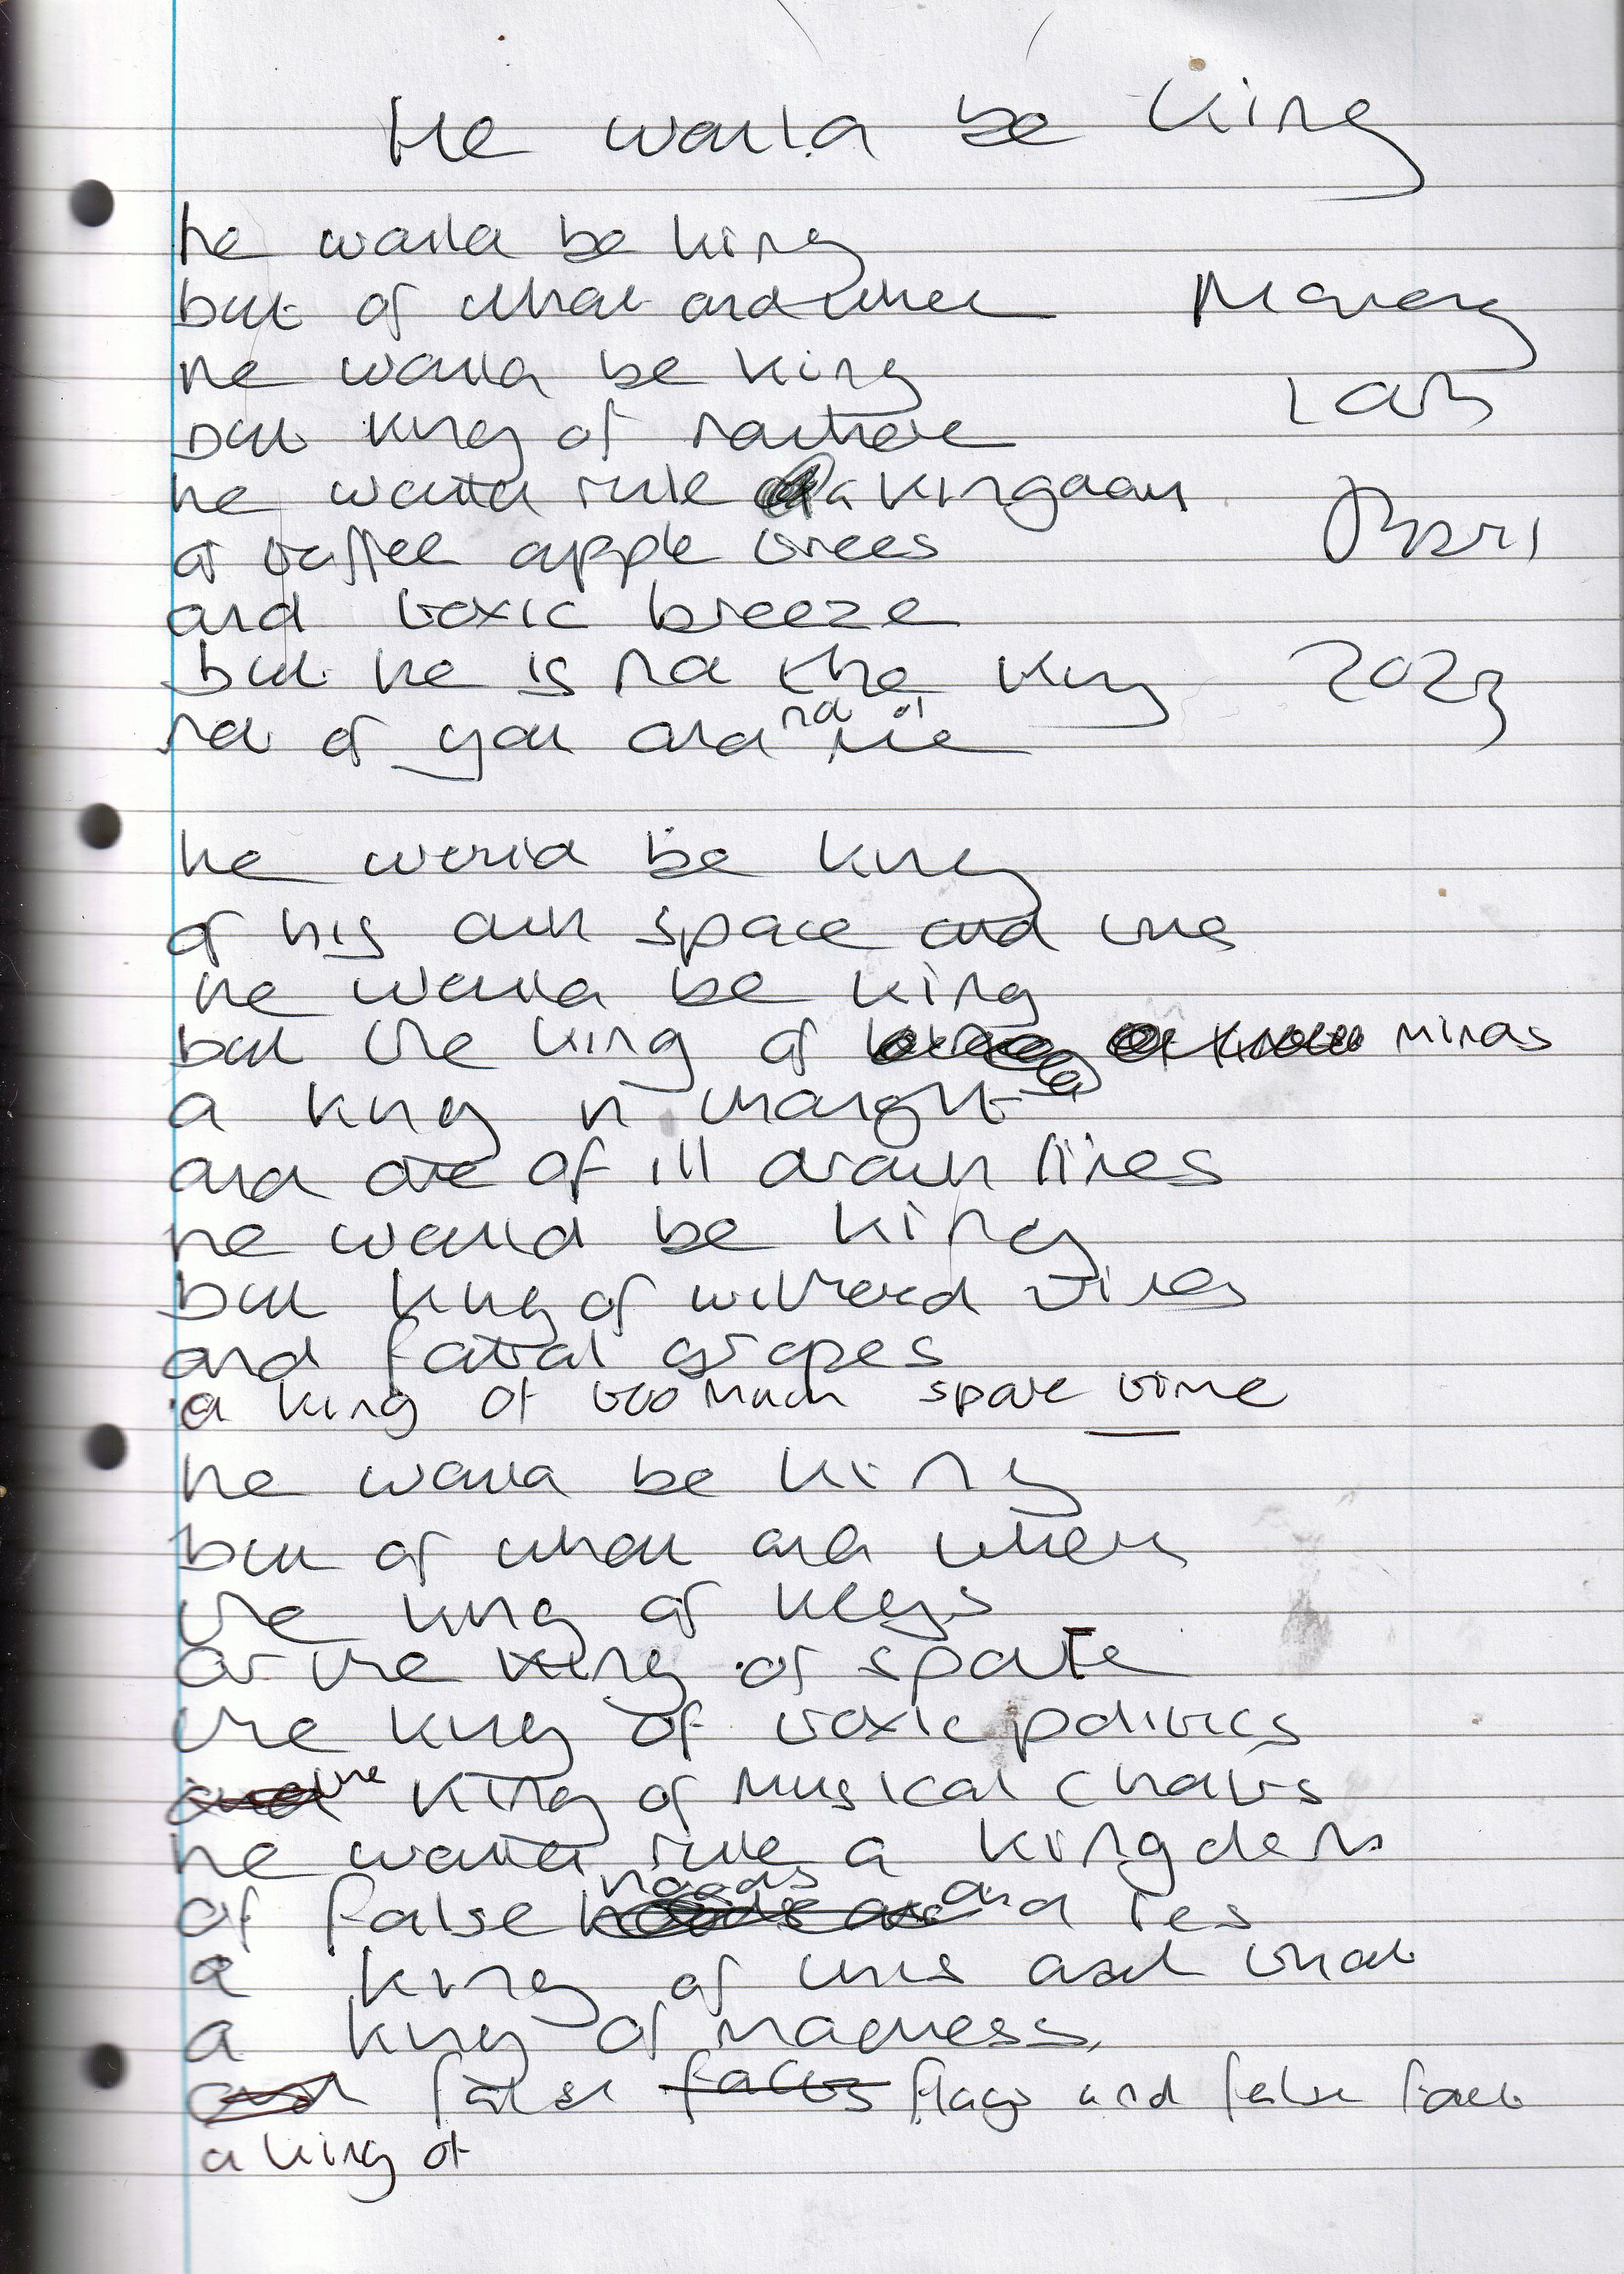 He would be King
he would be king
but of what and where
he would be king
but king of nowhere
he would rule a kingdom
of toffee apple trees
and toxic breeze
but he is not the king
not of you and not of me
Monday
10th
April
2023
he would be king
of his own space and time
he would be king
but the king of minds
a king in thought
and one of ill drawn lines
he would be king
but king of withered vines
and fatal grapes
a king of too much spare time
he would be king
but of what and where
the king of keys
or the king of spate
the king of toxic politics
the king of musical chairs
he would rule a kingdom
of false hoods and lies
a king of this and that
a king of madness
false facts flags and false facts
a king of